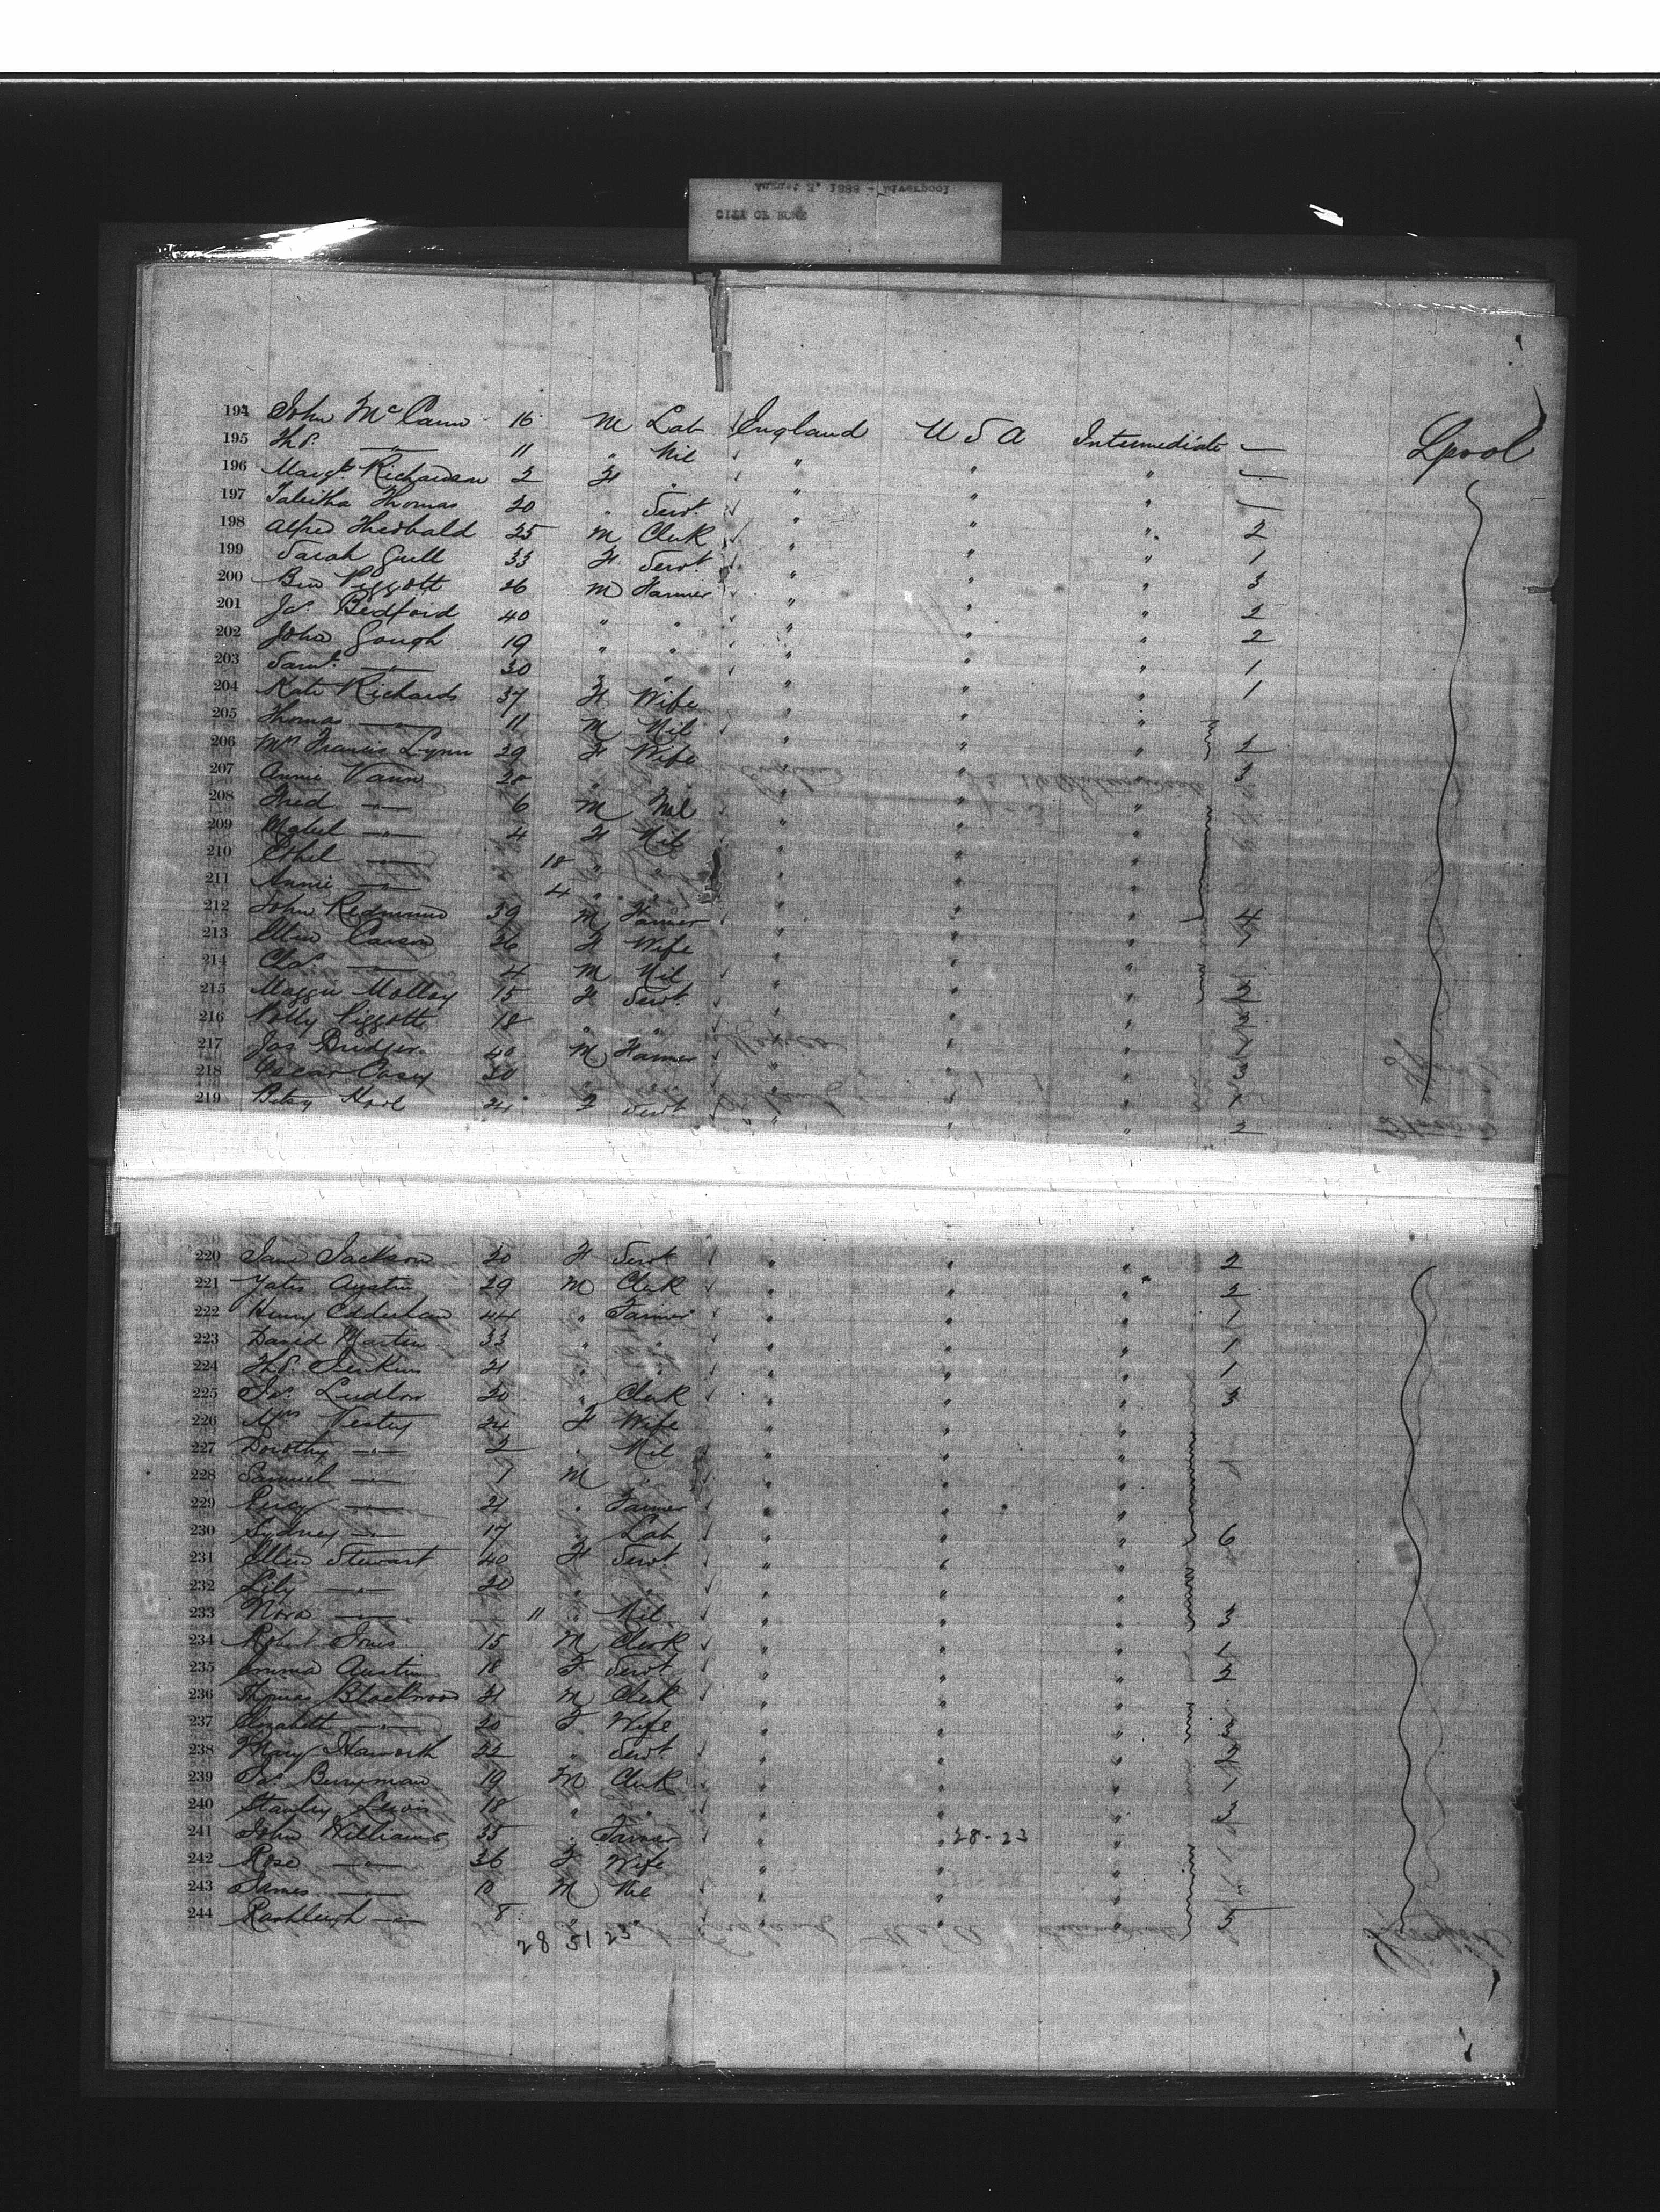 August 2, 1888 - Liverpool
CITY OF ROME
194 John McCann 16 M Lab England U S A Intermediate — Lpool
195 Thos. —"— 11 " Nil " " " —
196 Margt. Richardson 2 F " " " " —
197 Tabitha Thomas 20 " Servt. " " "
198 Alfred Theobald 25 M Clerk " " " 2
199 Sarah Gull 33 F Servt. " " " 1
200 Ben Piggott 26 M Farmer " " " 3
201 Jas. Bedford 40 " " " " " 2
202 John Gough 19 " " " " " 2
203 Saml. —"— 30 " " " " " 1
204 Kate Richards 37 F Wife " " " 1
205 Thomas —"— 11 M Nil " " "
206 Mrs Francis Lynn 29 F Wife " " " 2
207 Annie Vann 28 " " " " "
208 Fred —"— 6 M Nil " " "
209 Mabel —"— 4 F Nil " " "
210 Ethel —"— 18 " " " " "
211 Annie —"— 4 " " " " "
212 John Redmund 39 M Farmer " " " 4
213 Ellen Carson 26 F Wife " " " 1
214 Chas. —"— 4 M Nil " " "
215 Maggie Molloy 15 F Servt. " " " 2
216 Polly Piggott 18 " " " " "
217 Jas Bridger 40 M Farmer " " "
218 Oscar Casey 30 " " " " " 3
219 Betsy 21 F Servt " " " 1
2
220 Jane Jackson 20 F Servt " " " 2
221 Yates Austin 29 M Clerk " " " 2
222 Henry 44 " Farmer " " " 1
223 David Martin 33 " " " " " 1
224 Thos. Jenkins 21 " " " " " 1
225 Jas. Ludlow 20 " Clerk " " " 3
226 Mrs Vestey 24 F Wife " " "
227 Dorothy —"— 2 " Nil " " "
228 Samuel —"— 7 M " " " "
229 Percy —"— 21 " Farmer " " "
230 Sydney —"— 17 " Lab " " " 6
231 Ellen Stewart 40 F Servt " " "
232 Lily —"— 20 " " " " "
233 Nora —"— 11 " Nil " " " 3
234 Robert Jones 15 M Clerk " " " 1
235 Emma Austin 18 F Servt " " " 2
236 Thomas Blackwood 21 M Clerk " " "
237 Elizabeth —"— 20 F Wife " " " 3
238 Mary Haworth 22 " Servt. " " " 2
239 Jas. Berryman 19 M Clerk " " " 1
240 Stanley Lewis 18 " " " " " 3
241 John Williams 35 " Farmer " " 28-23 "
242 Rose —"— 36 F Wife " " "
243 James —"— 10 M Nil " " "
244 Rashleigh —"— 8 " " " " " 5
28 51 23